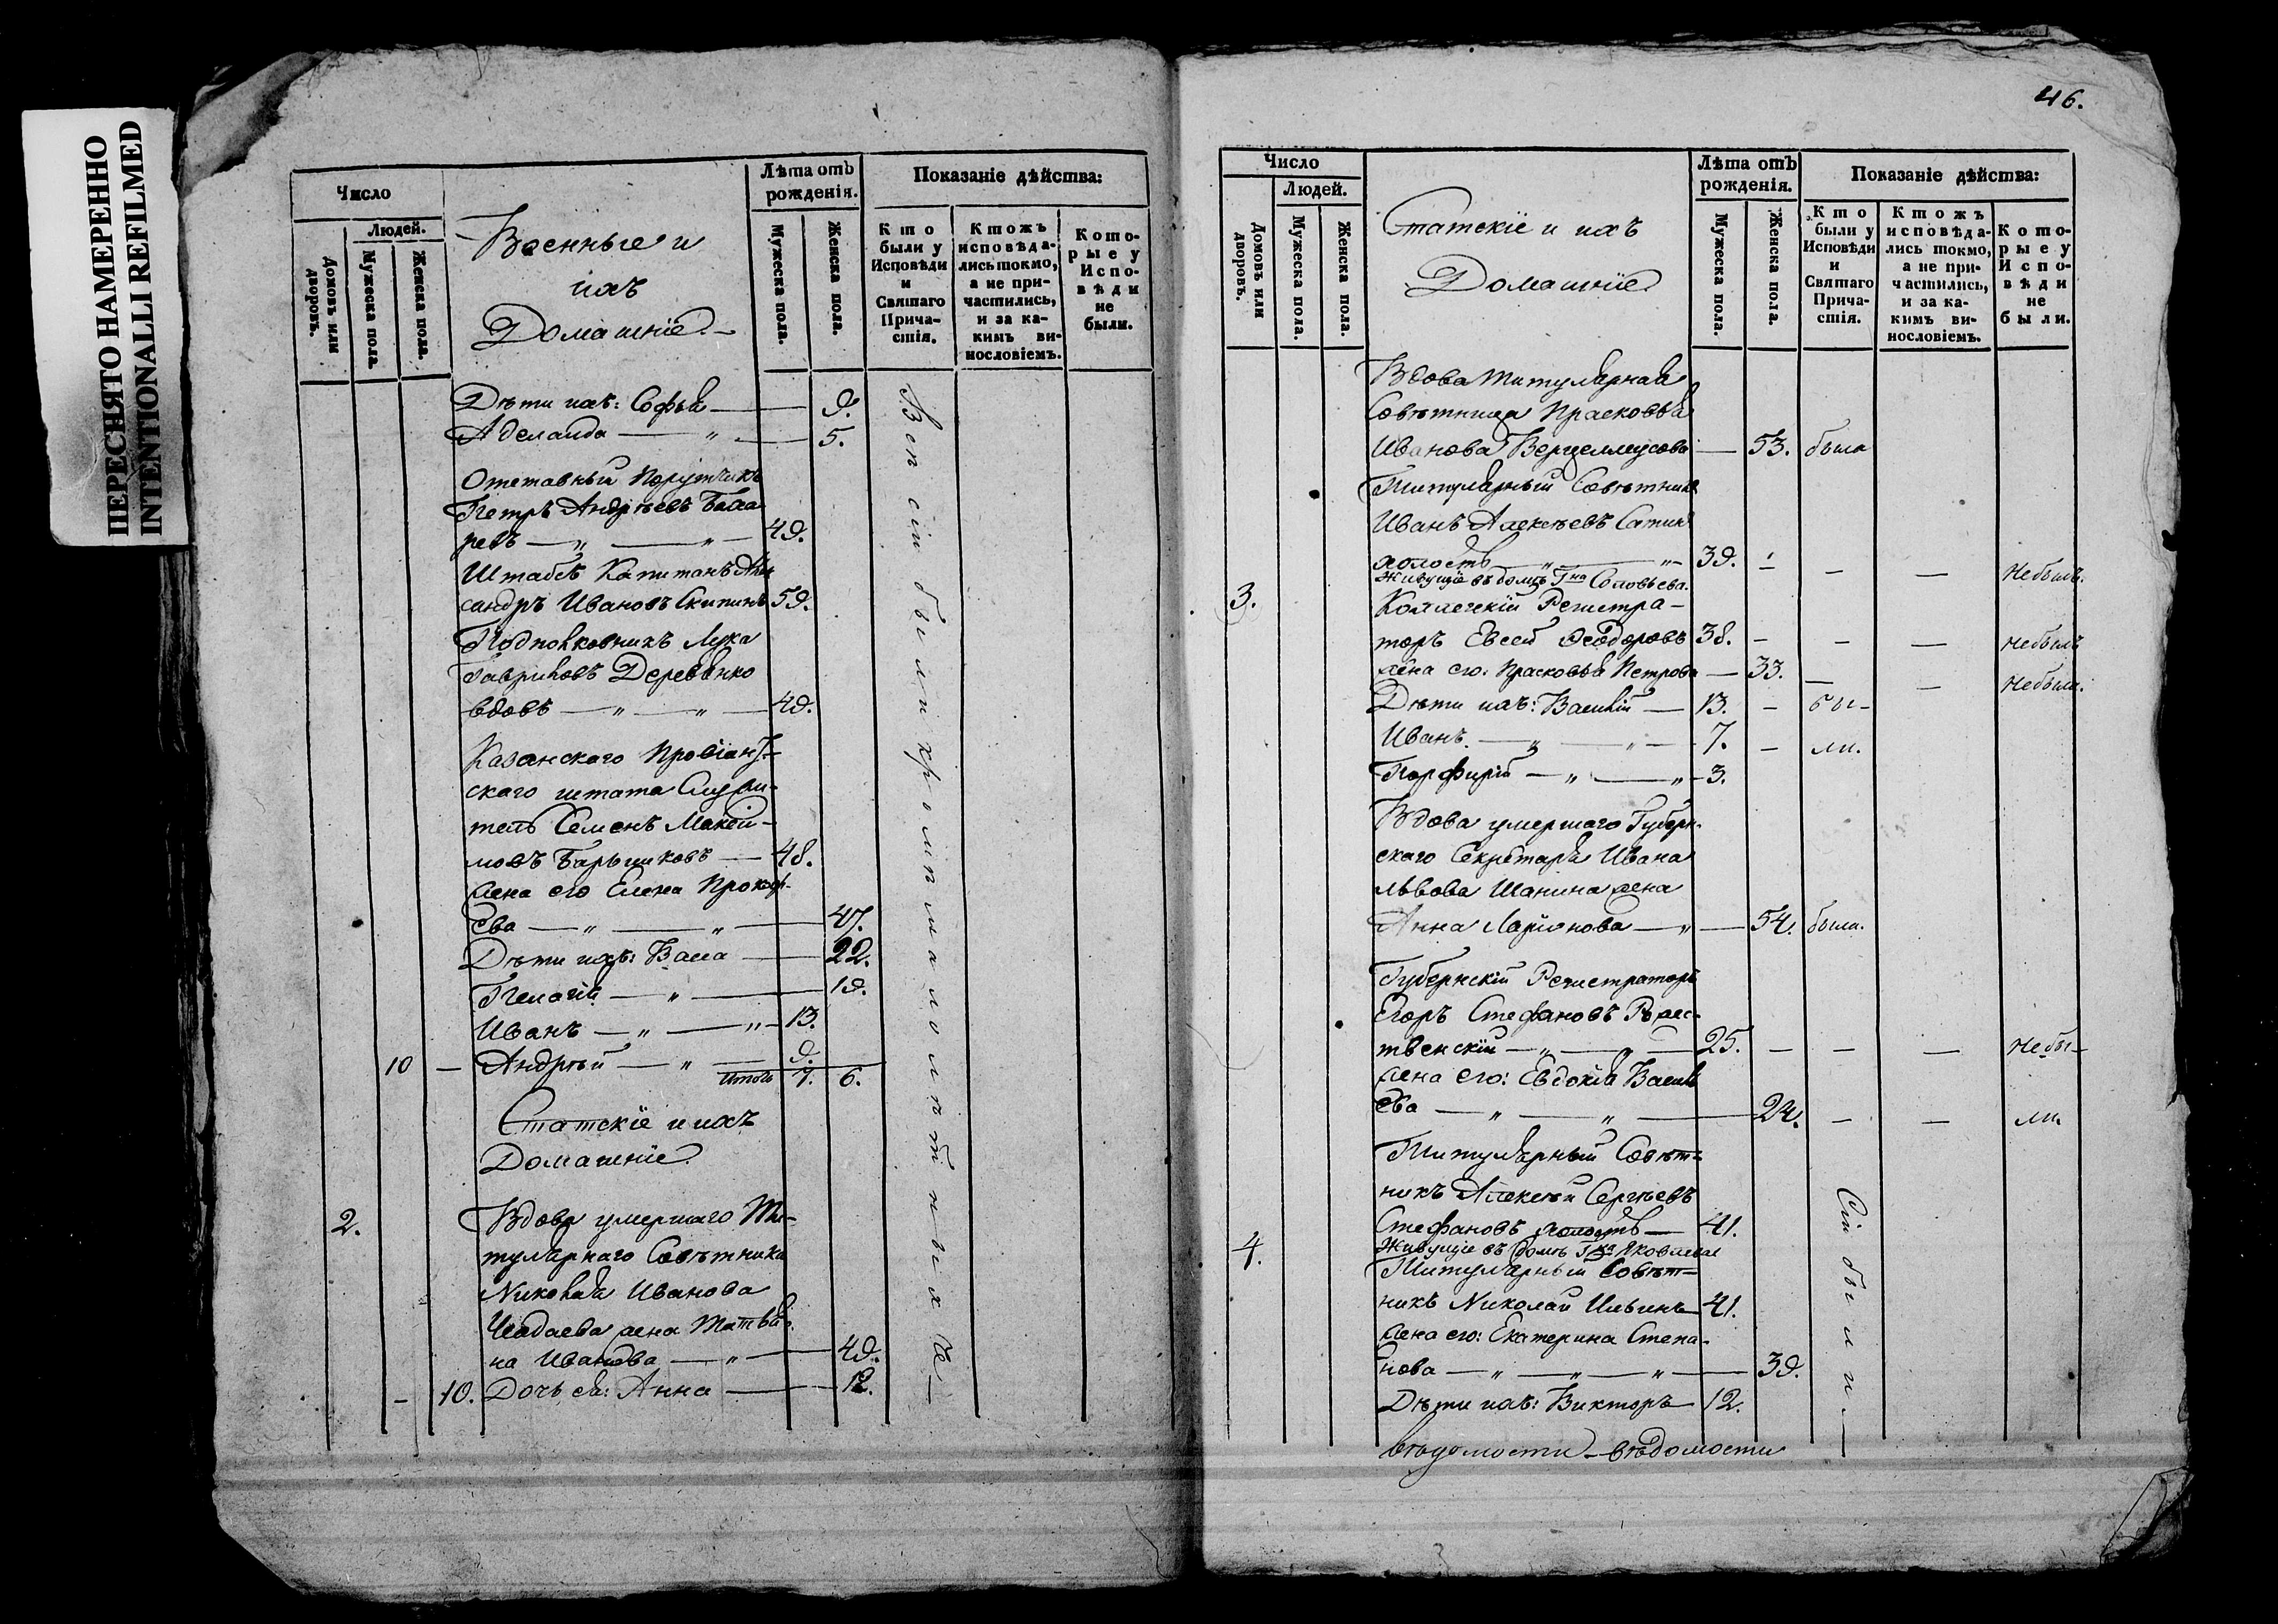 ПЕРЕСНЯТО НАМЕРЕННО
INTENTIONALLI REFILMED
Число
Людей.
Домовъ или дворовъ.
Мужеска пола.
Женска пола.
Военные и
ихъ
Домашніе
Лѣта отъ
рожденія.
Мужеска пола.
Женска пола.
Показаніе дѣйства:
Кто
были у
Исповѣди
и
Святаго
Прича-
стія.
Ктожъ
исповѣда-
лись токмо,
а не при-
частились,
и за ка-
кимъ ви-
нословіемъ.
Кото-
рые у
Испо-
вѣди
не
были.
Дѣти ихъ: Софья — 9.
Аделаида — „ — 5.
Отставный Порутчикъ
Петръ Андрѣевъ
ревъ — „ — „ — 49.
Штабсъ Капитанъ Алек
сандръ Ивановъ Скипинъ 59.
Подполковникъ Лука
Гавриловъ Деревянко
вдовъ — „ — „ — 49.
Казанскаго Провіант-
скаго штата Служи-
тель Семенъ Макси-
мовъ Барышковъ — 48.
жена его Елена Прокоф-
ева — „ — „ — 47.
Дѣти ихъ: Васса — 22.
Пелагія — „ — 19.
Иванъ — „ — „ — 13.
10 — Андрѣй — „ — 9.
Итого 7. 6.
Статскіе и ихъ
Домашніе.
2. Вдова умершаго Ти-
тулярнаго Совѣтника
Николая Иванова
Чеадаева жена Татьян-
на Иванова — „ — 49.
— 10. Дочь ея: Анна — 12.
Вси сіи были при
46.
Число
Людей.
Домовъ или дворовъ.
Мужеска пола.
Женска пола.
Статскіе и ихъ
Домашніе
Лѣта отъ
рожденія.
Мужеска пола.
Женска пола.
Показаніе дѣйства:
Кто
были у
Исповѣди
и
Святаго
Прича-
стія.
Ктожъ
исповѣда-
лись токмо,
а не при-
частились,
и за ка-
кимъ ви-
нословіемъ.
Кото-
рые у
Испо-
вѣди
не
были.
Вдова титулярная
Совѣтница Прасковья
Иванова — 53. была
Титулярный Совѣтникъ
Иванъ Алексѣевъ Сатинъ
холостъ — „ — „ 39. — — — Небылъ.
Живущіе въ домѣ Гна Соловьева.
3. Коллежскій Регистра-
торъ Евсей Ѳеодоровъ 38. — — — небылъ
жена его: Прасковья Петрова — 33. — — Небыла.
Дѣти ихъ: Василій — 13. — бы-
Иванъ — „ — „ — 7. — ли.
Порфирій — „ — „ — 3.
Вдова умершаго Губерн-
скаго Секретаря Ивана
Львова Шанина жена
Анна Ларіонова — „ — 54. была.
Губернскій Регистраторъ
Егоръ Стефановъ Рждес-
твенскій — „ — „ — 25. — — — Небы-
жена его: Евдокія Василь
ева — „ — „ — 24. — — ли.
Титулярный Совѣт-
никъ Алексѣй Сергѣевъ
Стефановъ холостъ — 41.
4. Живущіе въ домѣ Яковлева
Титулярный Совѣт-
никъ Николай Ильинъ 41.
жена его: Екатерина Степа-
нова — „ — „ — „ — 39.
Дѣти ихъ: Викторъ — 12.
Сіи были —
вѣдомости – вѣдомости